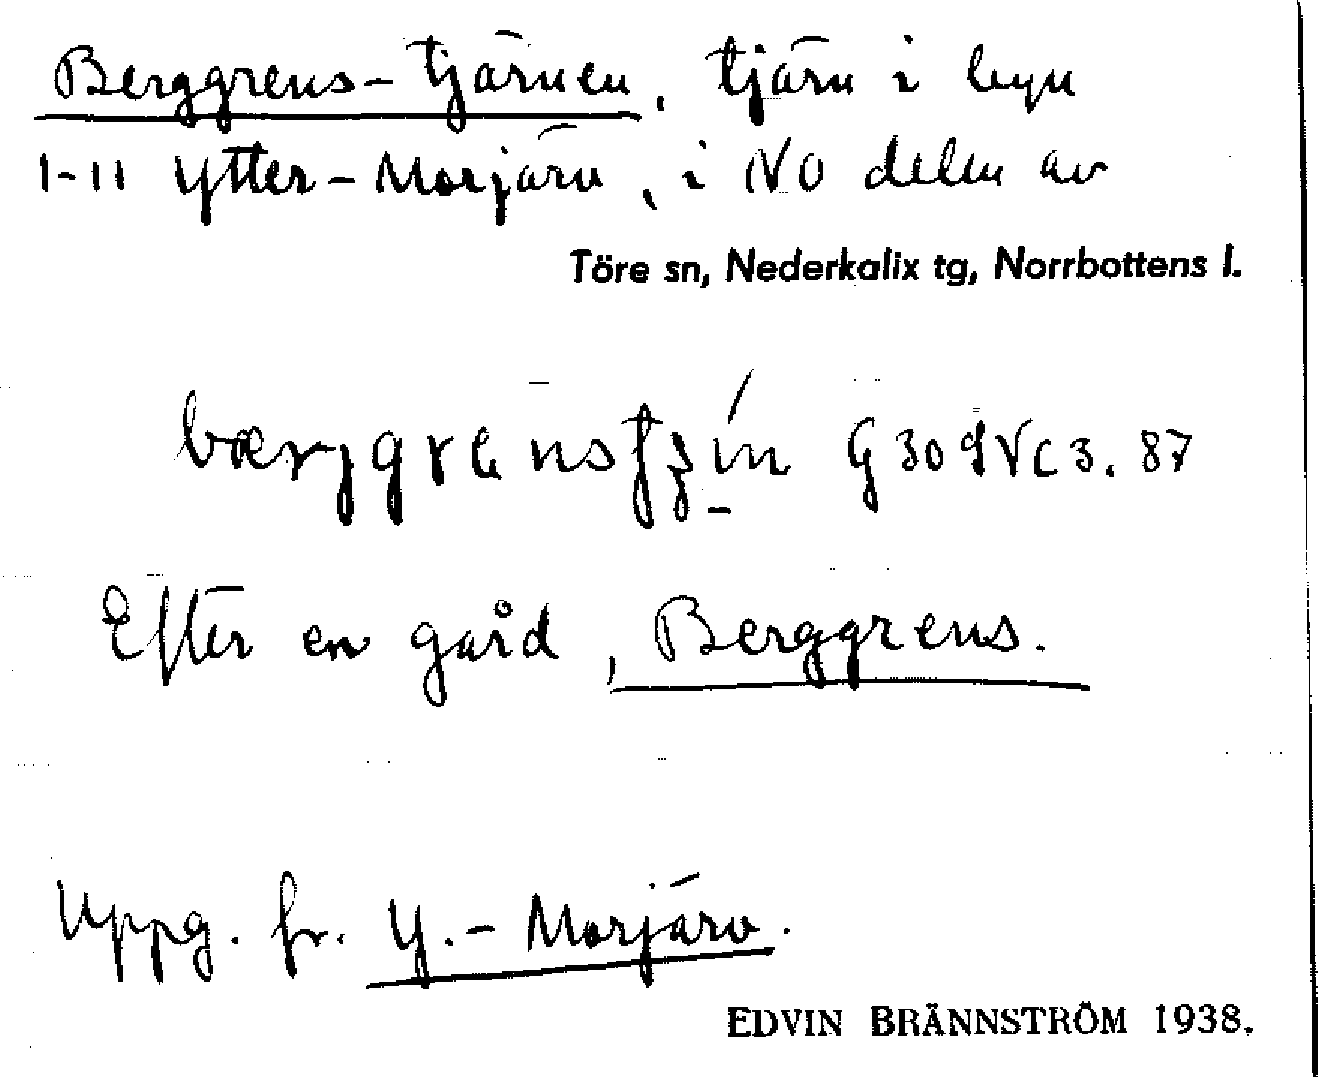 Berggrens-tjärnen, tjärn i byn
1-11 Ytter-Morjärv, i NO delen av
Töre sn, Nederkalix tg, Norrbottens l.
G 30 87
Efter en gård, Berggrens.
Uppg. fr. Y.-Morjärv.
EDVIN BRÄNNSTRÖM 1938.